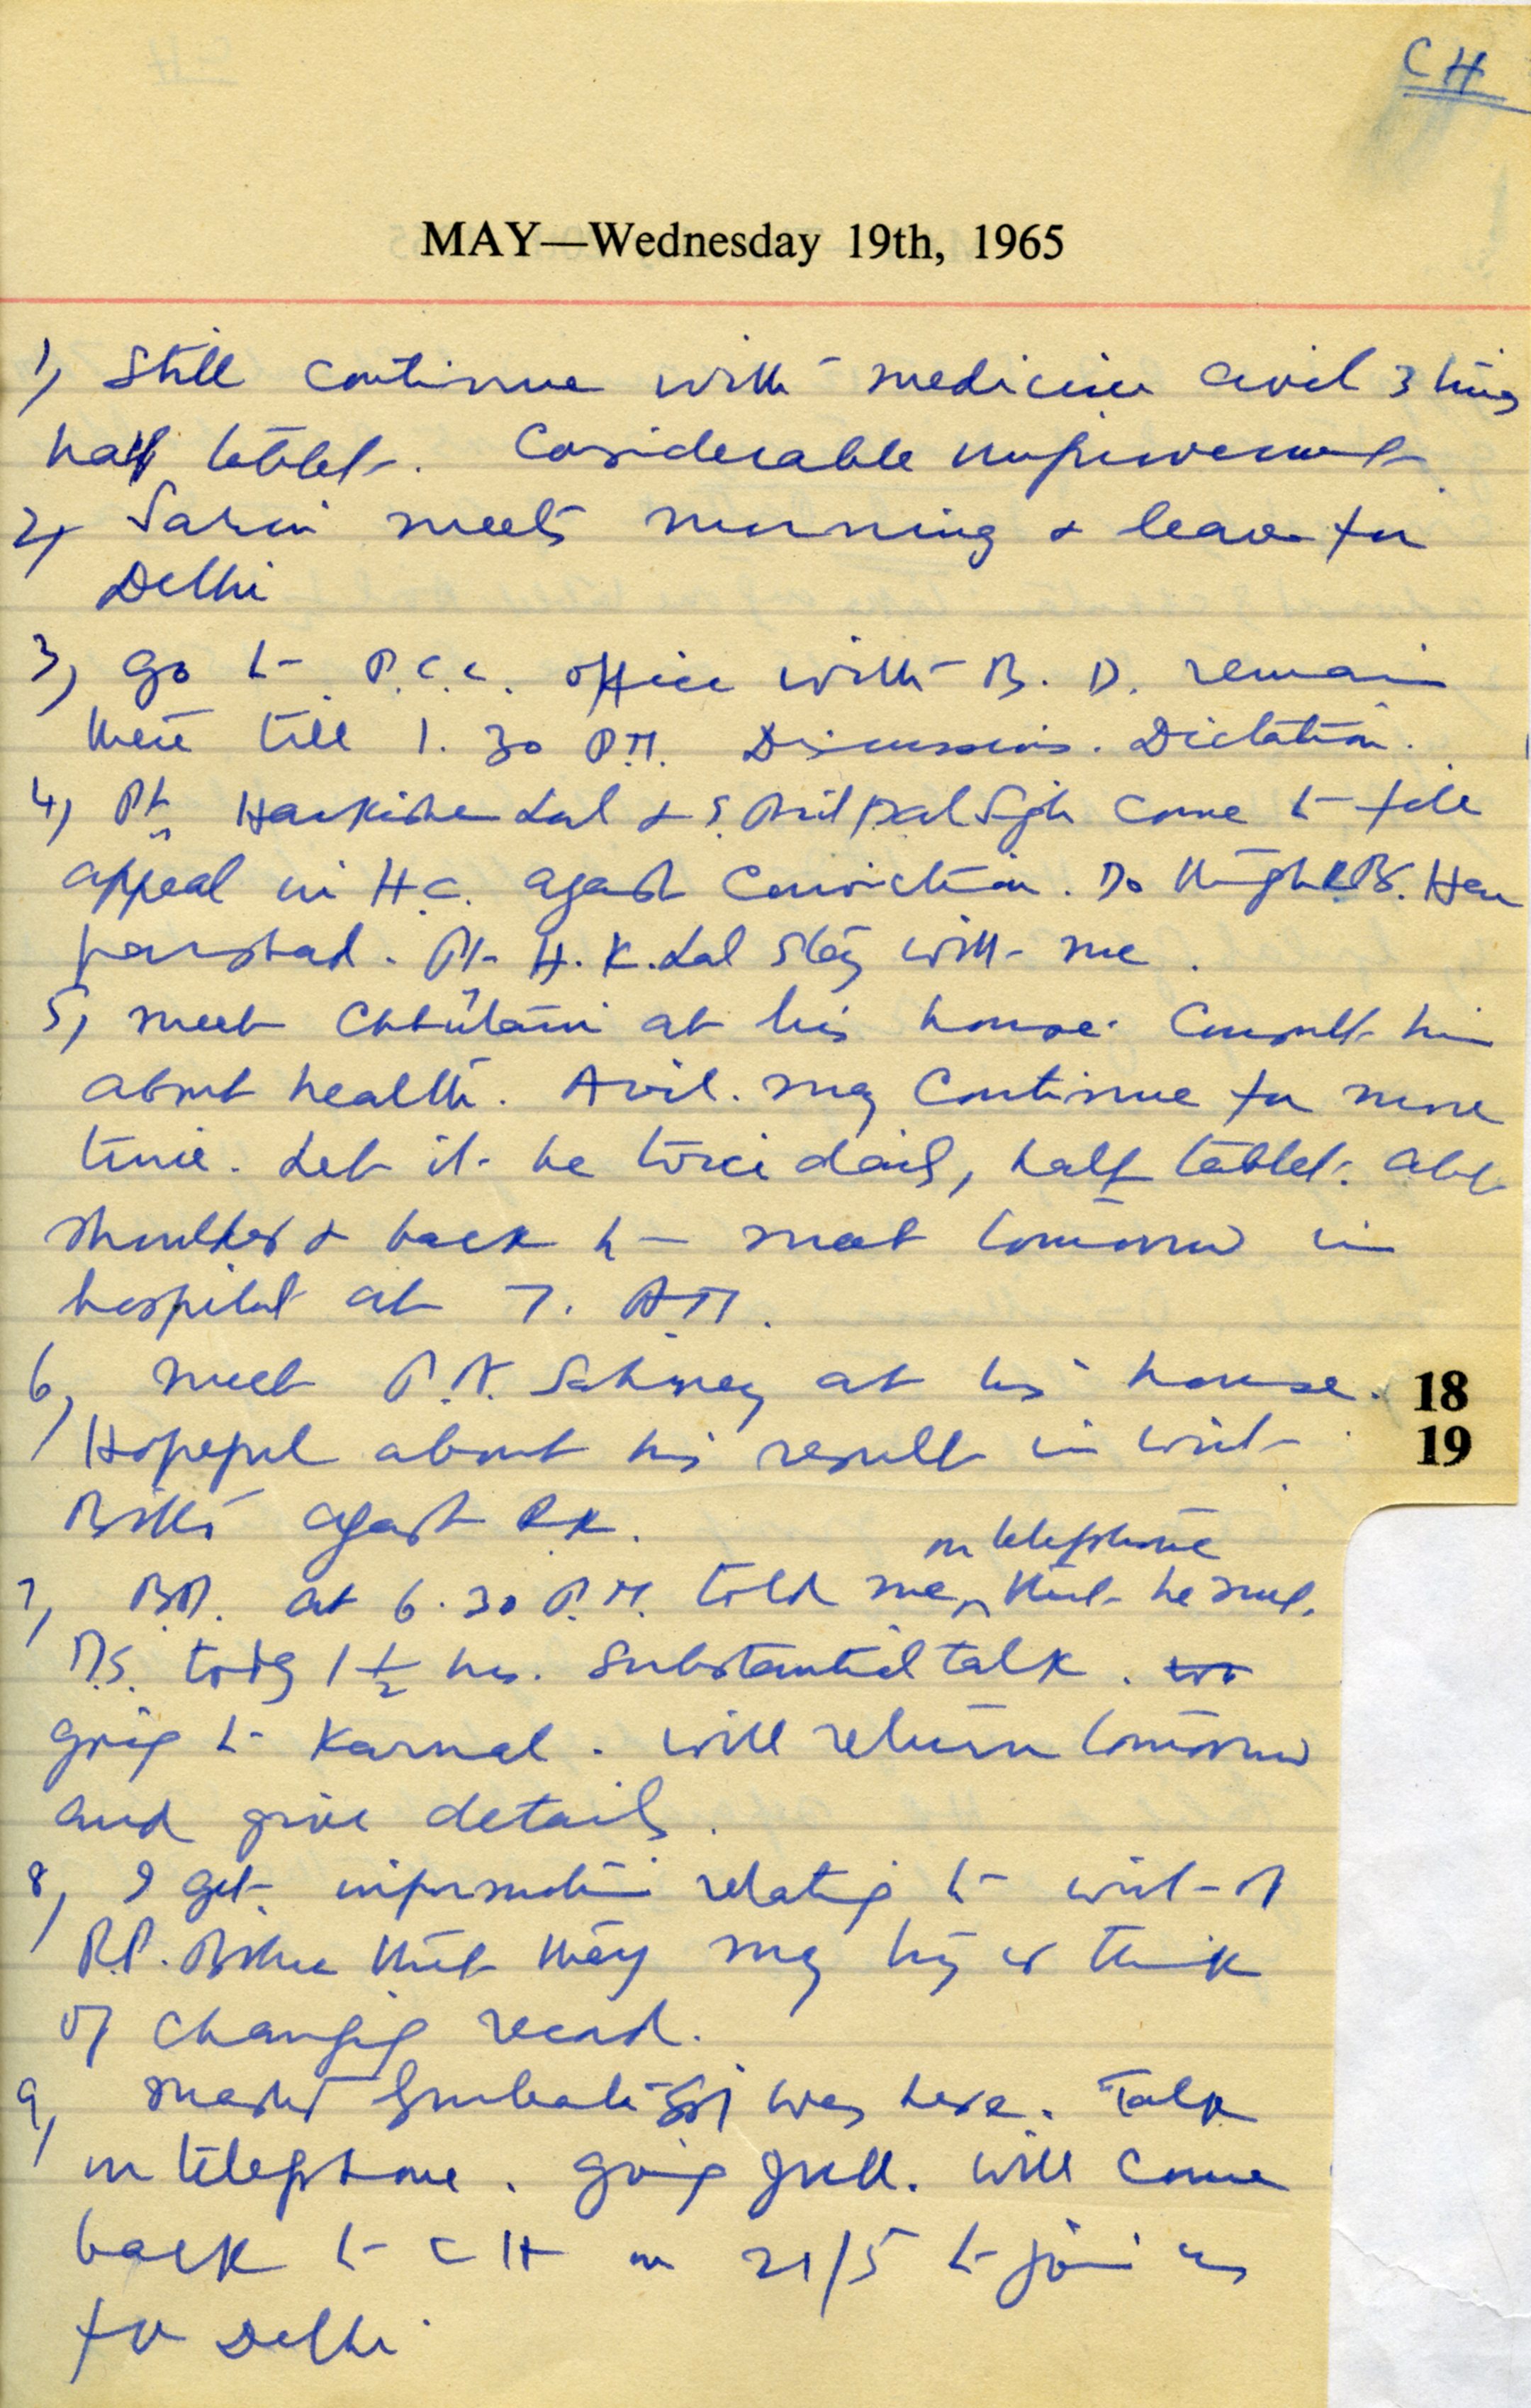 CH
MAY—Wednesday 19th, 1965
1, Still continue with medicine avil 3 times
half tablet. Cosiderable improvement
2, Sarin meets morning & leave for
Delhi
3, go to P.C.C. office with B. D. remain
there till 1. 30 P.M. Discussions. Dictation.
4, Pt. Harkishen Lal & S. Pritpal Sigh come to file
appeal in H.C. agast Conviction. Do through R.B. Har
parshad. Pt. H. K. Lal stay with me.
5, meet Chhutani at his house. Consult him
about health. Avil. may Continue for more
time. Let it be twice daily, half tablet. abt
shoulder & back to meet tomorrow in
hospital at 7. A.M.
6, meet P.N. Sahney at his house.
Hopeful about his result in writ
agast R.K.
18
19
on telephone
7, B.D. at 6.30 P.M. told me that he met
D.S. today 1 1/2 hrs. Substantial talk.
going to Karnal. will return tomorrow
and give details.
8, I get information relating to writ of
that they may try or think
of changing record.
9, master was here. Talk
on telephone. going Jull. will come
back to CH on 21/5 to join us
for Delhi